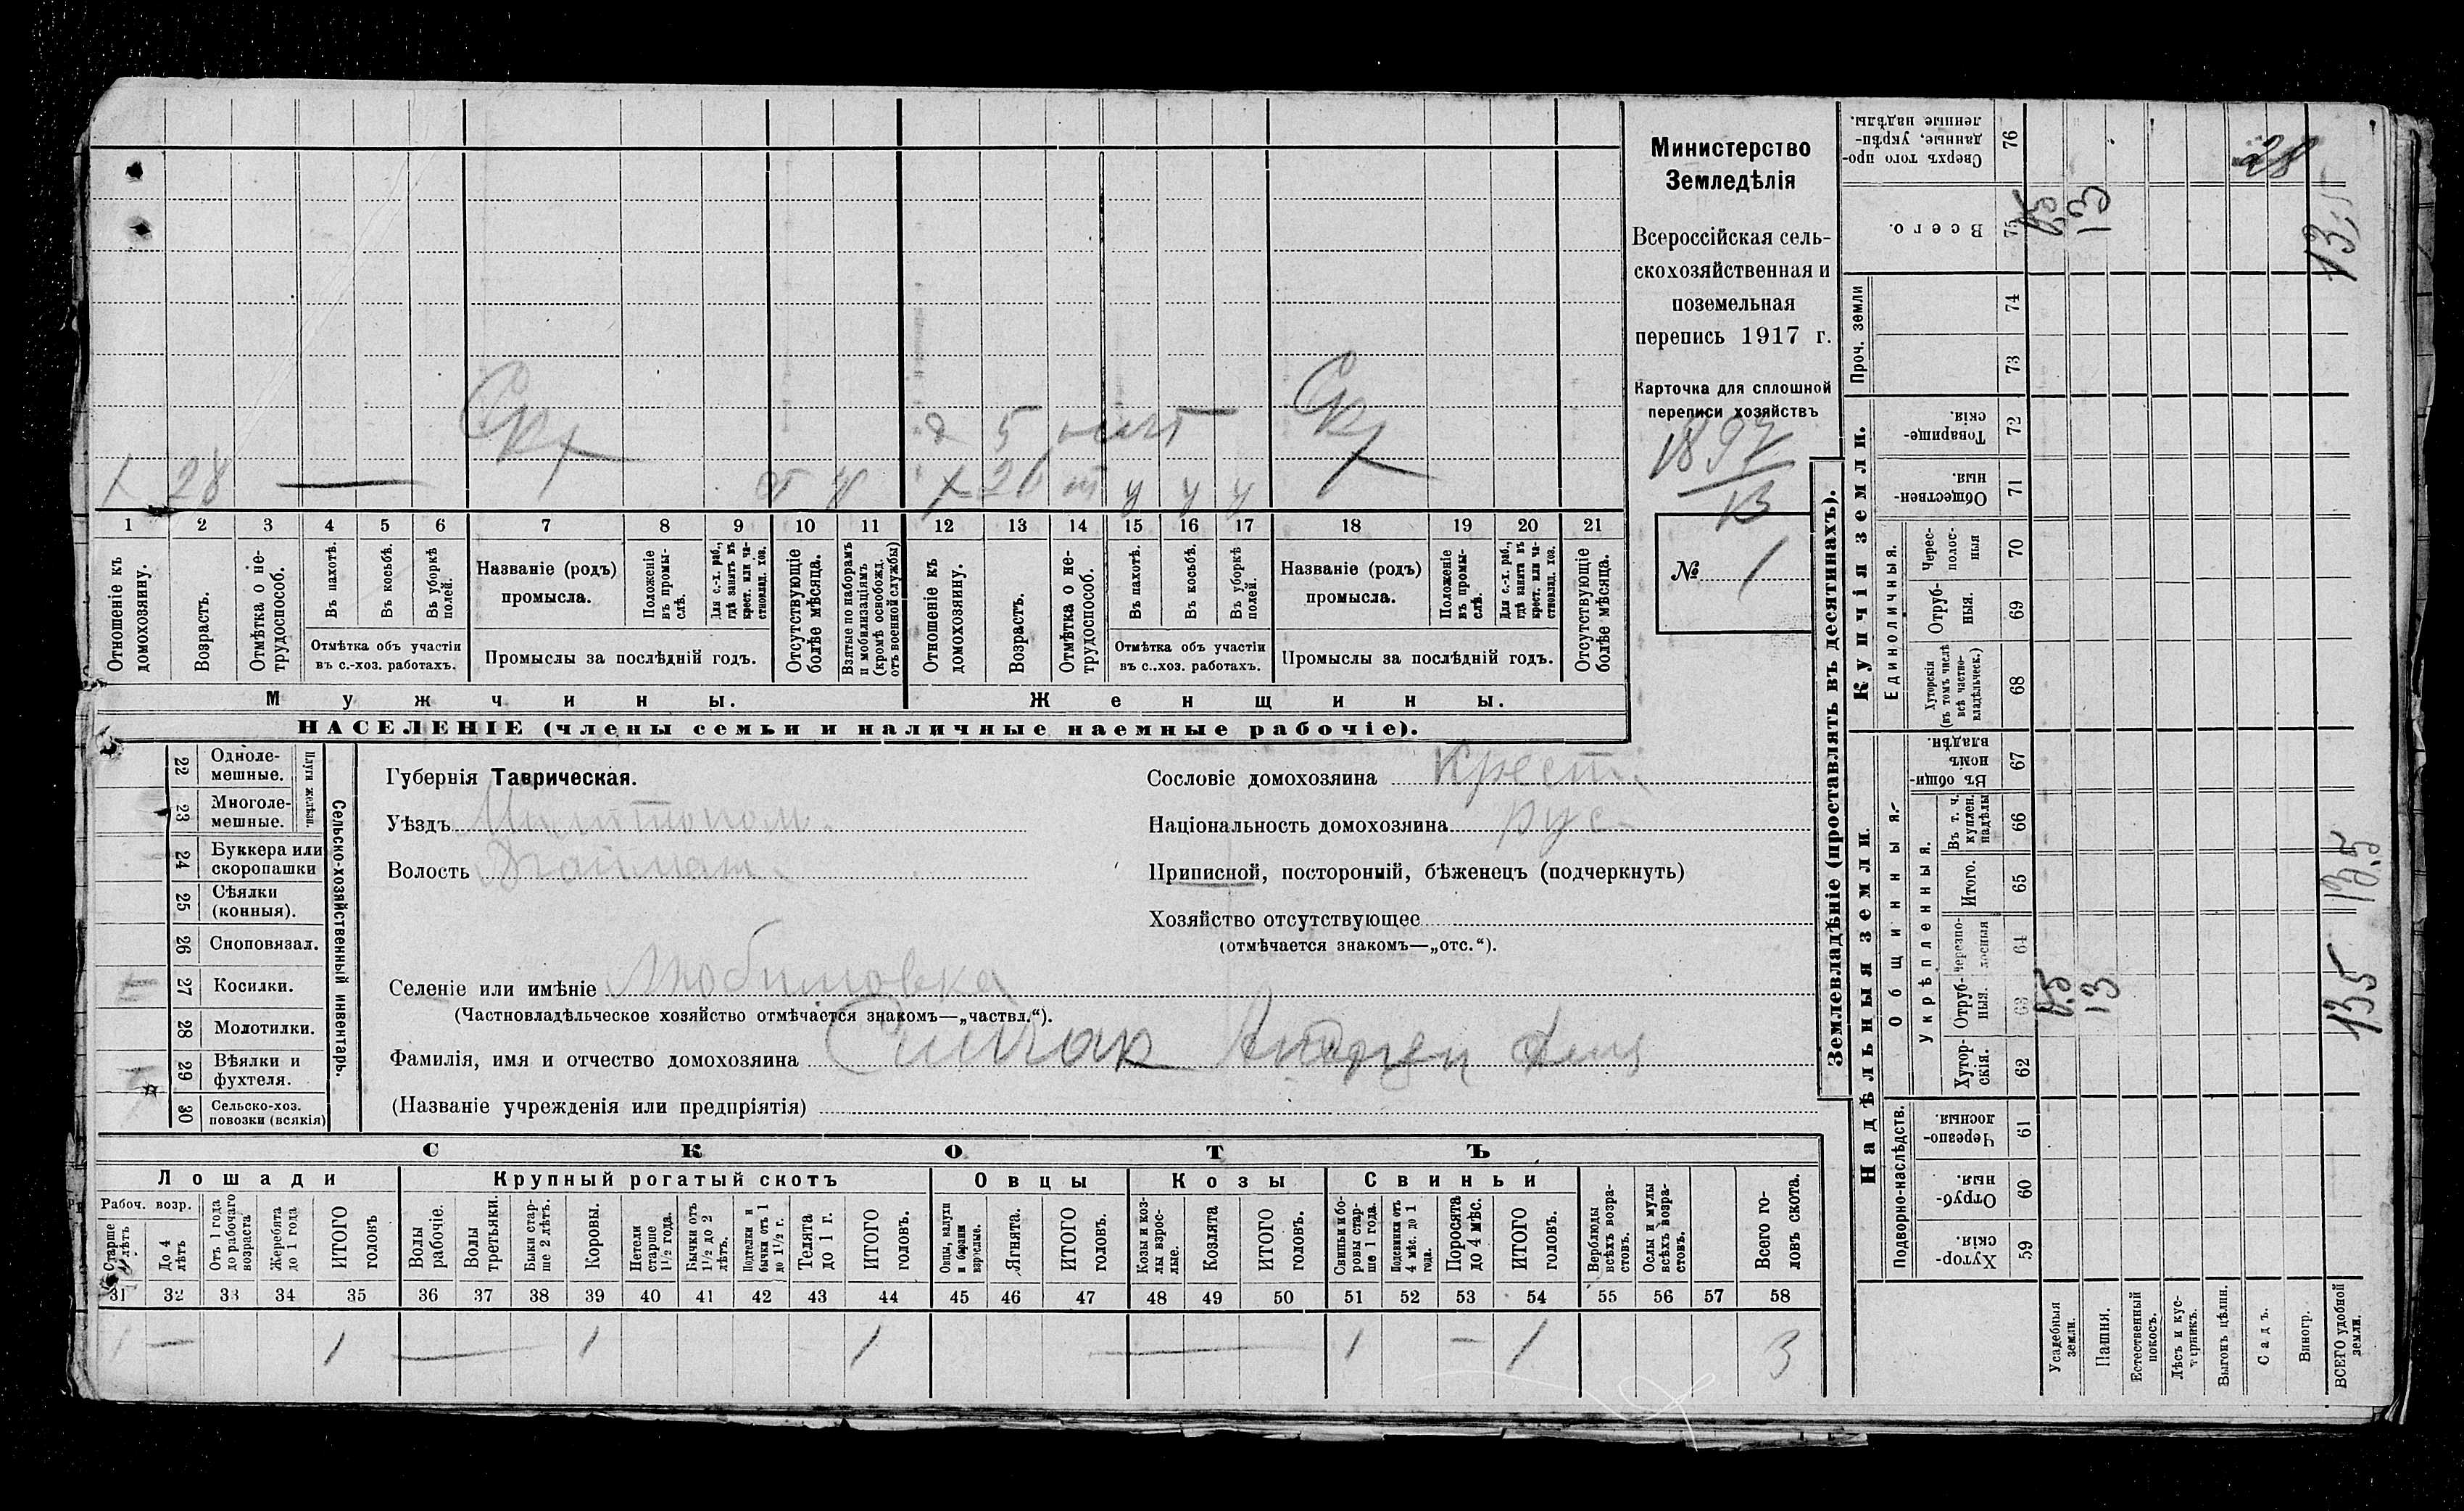 Х 28 — Скх
от н
д 5
Х 26 ч ч ч Скх
1 2 3 4 5 6 7 8 9 10 11 12 13 14 15 16 17 18 19 20 21
Отношеніе къ домохозяину.
Возрастъ.
Отмѣтка о не-трудоспособ.
Въ пахотѣ.
Въ косьбѣ.
Въ уборкѣ полей.
Отмѣтка объ участіи
въ с.-хоз. работахъ.
Названіе (родъ)
промысла.
Положеніе въ промы-слѣ.
Для с.-х. раб., гдѣ занятъ въ крест. или ча-стновлад. хоз.
Промыслы за послѣдній годъ.
Отсутствующіе болѣе мѣсяца.
Взятые по наборамъ и мобилизаціямъ (кромѣ освобожд. отъ военной службы)
Отношеніе къ домохозяину.
Возрастъ.
Отмѣтка о не-трудоспособ.
Въ пахотѣ.
Въ косьбѣ.
Въ уборкѣ полей.
Отмѣтка объ участіи
въ с..хоз. работахъ.
Названіе (родъ)
промысла.
Положеніе въ промы-слѣ.
Для с.-х. раб., гдѣ занята въ крест. или ча-стновлад. хоз.
Промыслы за послѣдній годъ.
Отсутствующіе болѣе мѣсяца.
Мужчины.
Женщины.
НАСЕЛЕНІЕ (члены семьи и наличные наемные рабочіе).
Министерство
Земледѣлія
Всероссійская сель-
скохозяйственная и
поземельная
перепись 1917 г.
Карточка для сплошной
переписи хозяйствъ
1897
13
№ 1
22 Одноле-мешные.
23 Многоле-мешные.
Плуги желѣзн.
24 Буккера или скоропашки
25 Сѣялки (конныя).
26 Сноповязал.
27 Косилки.
28 Молотилки.
29 Вѣялки и фухтеля.
30 Сельско-хоз. повозки (всякія)
Сельско-хозяйственный инвентарь.
Губернія Таврическая.
Уѣздъ Мелитопол.
Волость
Селеніе или имѣніе Любимовка
(Частновладѣльческое хозяйство отмѣчается знакомъ—„частвл.“).
Фамилія, имя и отчество домохозяина Симак Андрей
(Названіе учрежденія или предпріятія)
Сословіе домохозяина Крест.
Національность домохозяина рус
Приписной, посторонній, бѣженецъ (подчеркнуть)
Хозяйство отсутствующее
(отмѣчается знакомъ—„отс.“).
СКОТЪ
Лошади
Крупный рогатый скотъ
Овцы
Козы
Свиньи
Рабоч. возр.
Старше 4 лѣтъ
До 4 лѣтъ
Отъ 1 года до рабочаго возраста
Жеребята до 1 года
ИТОГО головъ
Волы рабочіе.
Волы третьяки.
Быки стар-ше 2 лѣтъ.
Коровы.
Нетели старше 1½ года.
Бычки отъ 1½ до 2 лѣтъ.
Подтелки и бычки отъ 1 до 1½ г.
Телята до 1 г.
ИТОГО головъ.
Овцы, валухи и бараны взрослые.
Ягнята.
ИТОГО головъ.
Козы и коз-лы взрос-лые.
Козлята
ИТОГО головъ.
Свиньи и бо-ровы стар-ше 1 года.
Подсвинки отъ 4 мѣс. до 1 года.
Поросята до 4 мѣс.
ИТОГО головъ.
Верблюды всѣхъ возра-стовъ.
Ослы и мулы всѣхъ возра-стовъ.
Всего го-ловъ скота.
31 32 33 34 35 36 37 38 39 40 41 42 43 44 45 46 47 48 49 50 51 52 53 54 55 56 57 58
1 — 1 — 1 1 — 1 — 1 3
Землевладѣніе (проставлять въ десятинахъ).
Купчія земли.
Сверхъ того про-данные, укрѣп-ленные надѣлы.
76
28
Всего.
75
0,5 13 13,5
Проч. земли
74
73
Товарище-скія.
72
Обществен-ныя.
71
Единоличныя.
Черес-полос-ныя
70
Отруб-ныя.
69
Хуторскія (въ томъ числѣ всѣ частно-владѣльческ.)
68
Надѣльныя земли.
Въ общи-номъ владѣн.
67
Общинныя.
Укрѣпленныя.
Въ т. ч. куплен. надѣлы
66
Итого.
65
13,5
Черезпо-лосныя
64
Отруб-ныя.
63
0,5 13 13,5
Хутор-скія.
62
Подворно-наслѣдств.
Черезпо-лосныя
61
Отруб-ныя.
60
Хутор-скія.
59
Усадебныя земли.
Пашня.
Естественный покосъ.
Лѣсъ и кус-тарникъ.
Выгонъ цѣлин.
Садъ.
Виногр.
ВСЕГО удобной земли.